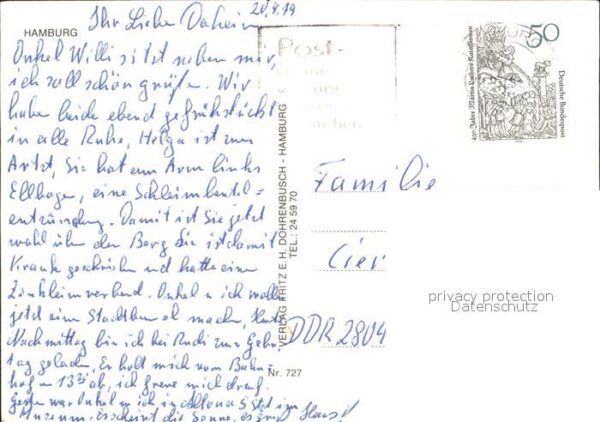 20.4.79
Ihr Lieben Daheim
HAMBURG
Onkel Willi sitzt neben mir,
ich soll schön grüßen. Wir
haben beide ebend gefrühstückt
in alle Ruhe, Helga ist zum
Artzt, Sie hat am Arm links
Ellbogen, eine Schleimbeutel=
entzündung. Damit ist Sie jetzt
wohl über den Berg Sie ist damit
Krank geschrieben und hatte einen
Zinkleimverband. Onkel u ich wollen
jetzt eine Stadtbummel machen, Heute
Nachmittag bin ich bei Rudi zum Geburts
tag geladen, Er holt mich vom Bahn-
hof 13 ab, ich freue mich drauf.
Gestern war Onkel u ich in Altona 5 Std im
Museum. Es scheint die Sonne, es
Post-
VERLAG FRITZ E. H. DOHRENBUSCH - HAMBURG
TEL.: 24 59 70
Nr. 727
50
Deutsche Bundespost
450 Jahre Martin Luthers Katechismus
Familie
Cier
DDR 2804
privacy protection
Datenschutz